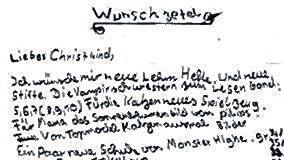 Wunschzettel
Liebes Christkind,
Ich wünsche mir neue Lehm Hefte, und neue
Stifte. Die Vampirschwestern zum Lesen band.
5,6,7(8,9,10) Für die Katzen neues Spielzeug.
Für Mama das Sonnen von philips.
Von Topmodel, Katzen
Ein Paar neue Schuh von Monster Highe.